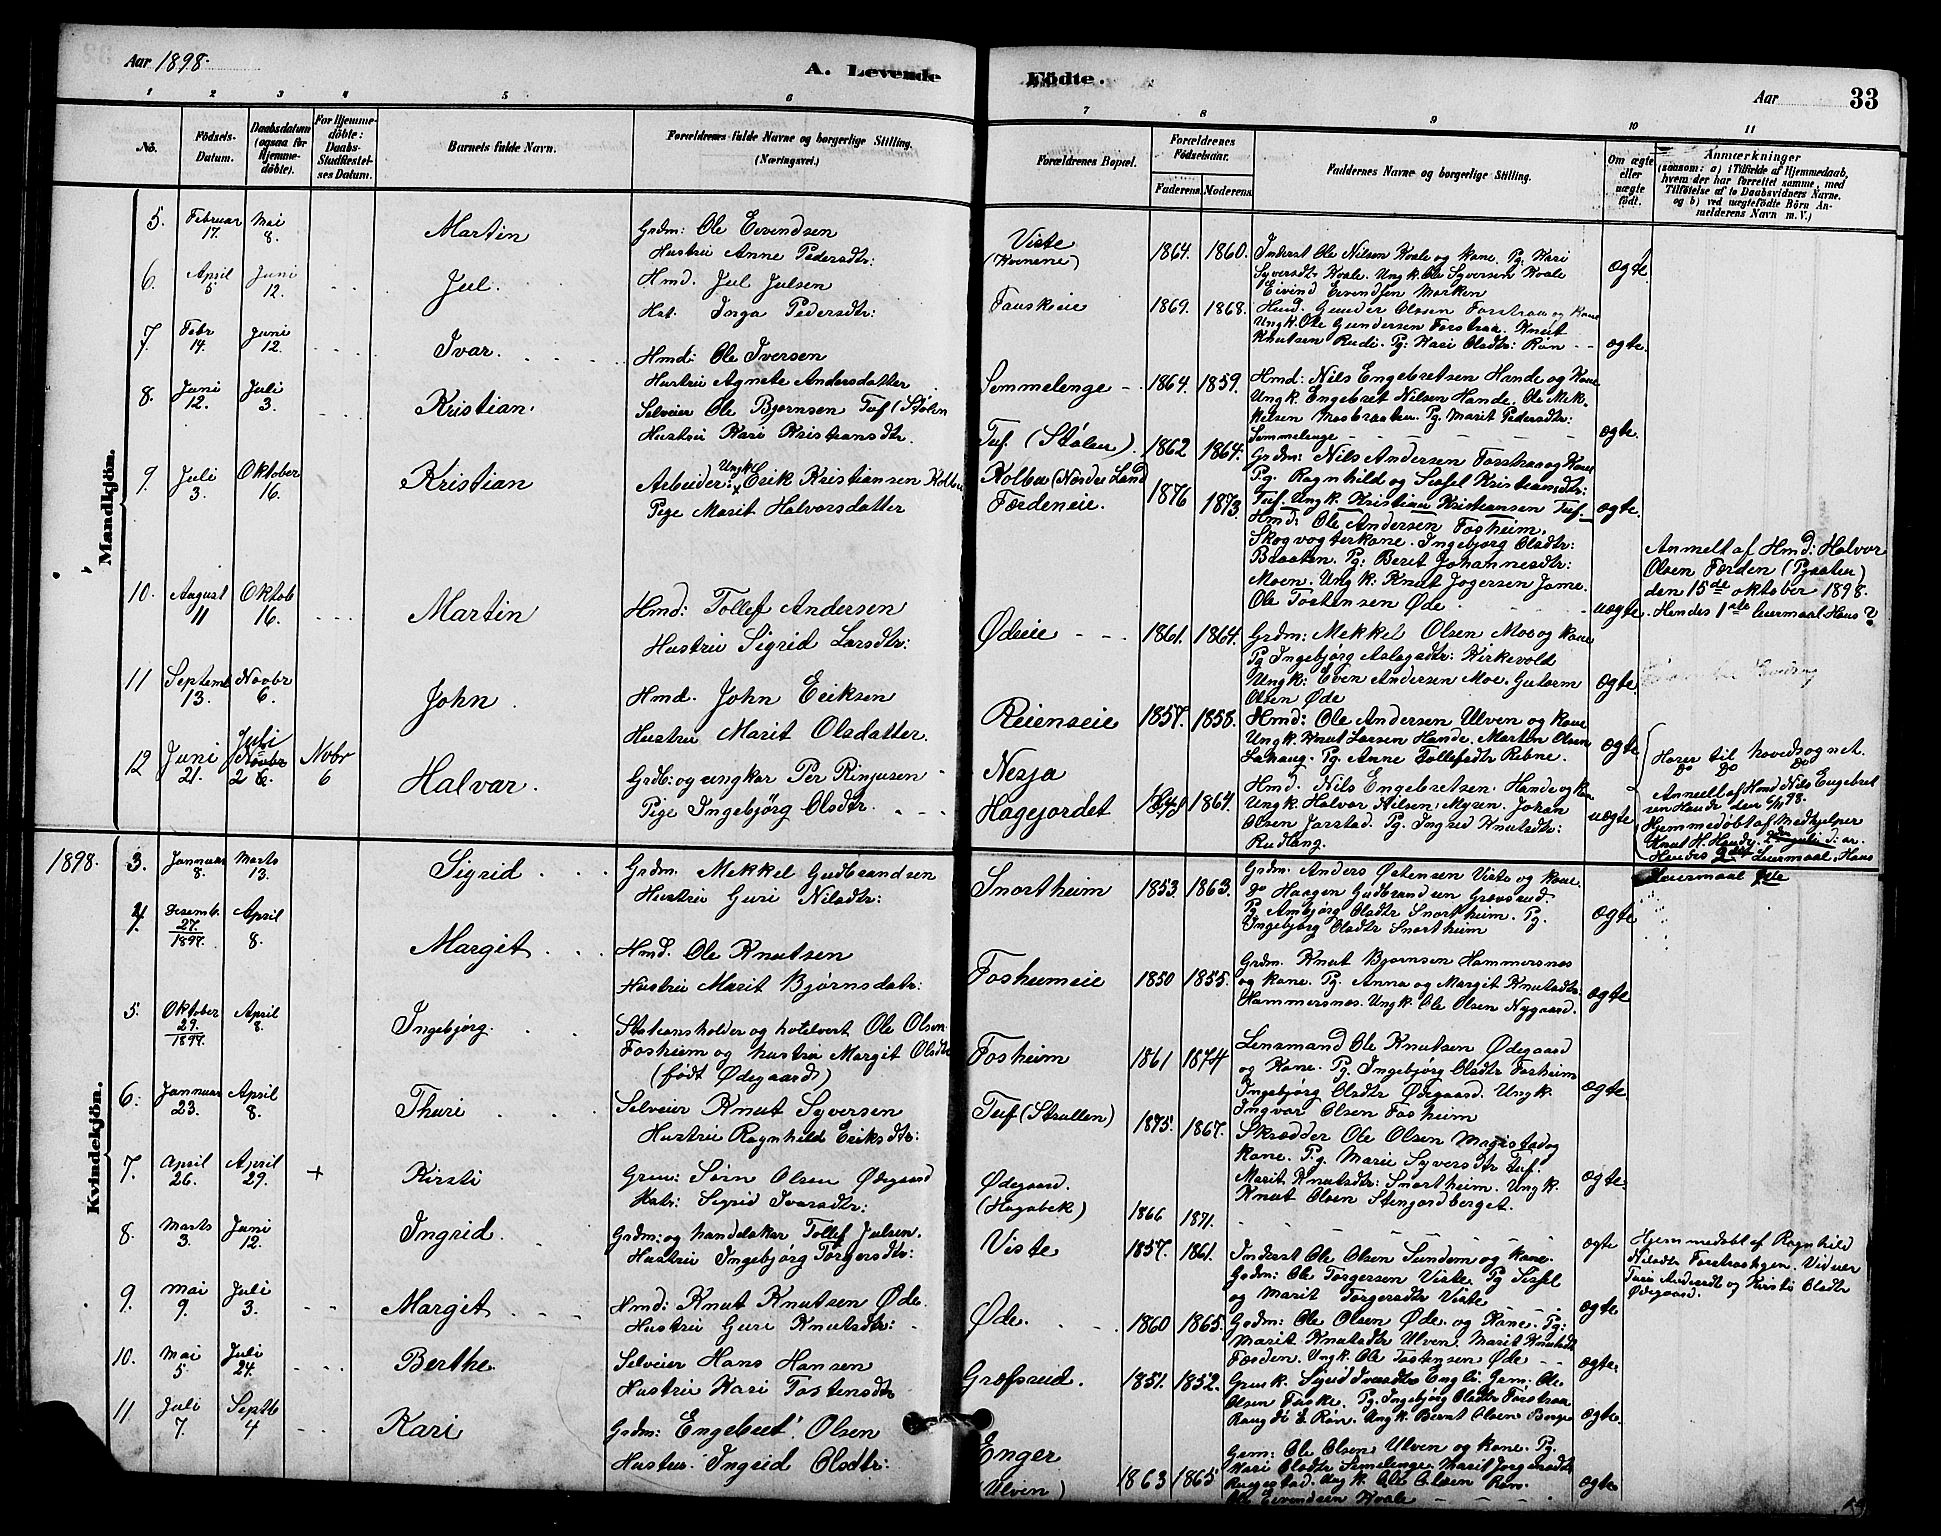 Aar 1898.
A. Levende Födte.
Aar
33
1 2 3 4 5 6 7 8 9 10 11
No.
Födsels-Datum.
Daabsdatum (ogsaa for Hjemme-döbte).
For Hjemme-döbte: Daabs-Stadfæstel-ses Datum.
Barnets fulde Navn.
Forældrenes fulde Navne og borgerlige Stilling. (Næringsvei.)
Forældrenes Bopæl.
Forældrenes Födselsaar.
Faderens. Moderens.
Faddernes Navne og borgerlige Stilling.
Om ægte eller uægte födt.
Anmærkninger
(saasom: a) i Tilfælde af Hjemmedaab, hvem der har forrettet samme, med Tilföielse af to Daabsvidners Navne, og b) ved uægtefödte Börn Anmelderens Navn m. V.)
Mandkjön.
5. Februar 17. Mai 8. Martin Grdm: Ole Eivendsen
Hustru Anne Pedersdtr:
Viste 1864. 1860. Inderst Ole Nilsen Kvale og kone. Pg. Kari
Syversdtr Kvale. Ungk. Ole Syversen Kvale
Eivind Eivendsen Marken
ægte
6. April 5 Juni 12. Jul. Hmd. Jul Julsen
Hst. Inga Pedersdtr:
Fauskeie 1869. 1868. Hmd. Gunder Olsen Forstraa og Kone
Ungk. Ole Gundersen Forstraa. Knut
Knutsen Rudi. Pg: Kari Olsdtr: Røn
ægte.
7. Febr 14. Juni 12. Ivar. Hmd: Ole Iversen
Hustru Agnete Andersdatter
Semmelenge 1864. 1859. Hmd: Nils Engebretsen Hande og Kone
Ungk. Engebret Nilsen Hande. Ole Mek-
kelsen Mosbraaten. Pg. Marit Pedersdtr:
Semmelenge
ægte.
8. Juni 12. Juli 3. Kristian. Selveier Ole Bjørnsen Tuf (Stølen
Hustru Kari Kristiansdtr.
Tuf. (Stølen). 1862 1864. Grdm: Nils Andersen Forstraa og Kone
Pg. Ragnhild og Sissel Kristiansdtr:
Tuf. Ungk. Kristian Kristiansen Tuf.
ægte.
9. Juli 3. Oktober 16. Kristian Arbeider: Ungk Erik Kristiansen Kolbu
Pige Marit Halvorsdatter
Kolbu (Nordre Land
Førdeneie. 1876 1873. Hmd: Ole Andersen Fosheim.
Skogvogterkone. Ingebjørg Olsdtr:
Braaten. Pg: Berit Johannesdtr:
Moen. Ungk. Knut Jogersen Jome.
Ole Tostensen Øde
uægte.
Anmelt af Hmd: Halvor
Olsen Førden
den 15de oktober 1898.
Hendes 1ste leiermaal Hans?
10. August 11 Oktob 16. Martin Hmd: Tollef Andersen
Hustru Sigrid Larsdtr:
Ødeie 1861. 1864. Grdm: Mekkel Olsen Moe og kone
Pg Ingebjørg Aslagsdtr: Kirkevold
Ungk: Even Andersen Moe. Gutorm
Olsen Øde
ægte.
11 Septemb 13. Novbr 6. John. Hmd. John Eriksen
Hustru Marit Olsdatter.
Reienseie 1857. 1858. Hmd: Ole Andersen Ulven og kone
Ungk. Knut Larsen Hande. Martin Olsen
Lahaug. Pg. Anne Tollefsdtr Rebne.
ægte
Hører til hovedsognet.
Do Do Do
12 Juni 21. Juli 2 Novbr 6 Halvar. Grdb: og ungkar Per Rinjusen
Pige Ingebjørg Olsdtr.
Nesja
Hagejordet 1864. Hmd. Nils Engebretsen Hande og kone
Ungk. Halvor Nilsen Myren. Johan
Olsen Jarstad. Pg. Ingrid Knutsdtr:
Rudlang.
uægte
Anmelt af Hmd Nils Engebret
sen Hande den 6/11 98.
Hjemmedøbt af Medhjelper
Knut H. Hande. 2den juli d: ar.
Hendes 2det Leiermaal. Hans
Leiermaal
Kvindekjön.
1898. 3. Januar 8. Marts 13. Sigrid Grdm. Mekkel Gudbrandsen
Hustru Guri Nilsdtr:
Snortheim 1853. 1863. Grdm. Anders Østensen Viste og kone.
do Haagen Gudbrandsen Grøvsrud.
Pg Ambjørg Olsdtr Snortheim. Pg.
Ingebjørg Olsdtr Snortheim
ægte
4. Desemb. 27. 1897. April 8. Margit Hmd. Ole Knutsen
Hustru Marit Bjørnsdatr:
Fosheimeie 1850 1855. Grdm. Knut Bjørnsen Hammersnes
og kone. Pg. Anna og Margit Knutsdtr
Hammersnes. Ungk. Ole Olsen Nygaard.
ægte
5. Oktober 29. 1897. April 8. Ingebjørg. Stationsholder og hotelvert Ole Olsen
Fosheim og hustru Margit Olsdtr
(født Ødegaard)
Fosheim 1861 1874 Lensmand Ole Knutsen Ødegaard
og Kone. Pg. Ingebjørg Olsdtr Fosheim
Ingebjørg Olsdtr Ødegaard. Ungk.
Ingvar Olsen Fosheim
ægte.
6. Januar 23. April 8. Thuri Selveier Knut Syversen
Hustru Ragnhild Eriksdtr:
Tuf (Strullen) 1875. 1867. Skrædder Ole Olsen Magistad og
kone. Pg. Marie Syversdtr Tuf.
Marit Knutsdtr: Snortheim. Ungk.
Knut Olsen Stenjordberget.
ægte.
7. April 26. April 29. + Kirsti Grm: Sørn Olsen Ødegaard
Hstr: Sigrid Ivarsdtr:
Ødegaard.
(Hagabek) 1866 1871.
ægte
Hjemmedøbt af Ragnhild
Nilsdtr Forstrashgen. Vidner
Turi Andersdt og Kirsti Olsdtr
Ødegaard.
8. Marts 3. Juni 12. Ingrid. Grdm: og handelskar Tollef Julsen.
Hustru Ingebjørg Torgersdtr:
Viste 1857. 1861. Inderst Ole Olsen Sundem og kone.
Grdm: Ole Torgersen Viste. Pg Sissel
og Marit Torgersdtr Viste
ægte
9. Mai 9. Juli 3. Margit Hmd: Knut Knutsen Øde.
Hustru Guri Knutsdtr:
Øde. 1860 1865. Grdm: Ole Olsen Øde og Kone. Pg:
Marit Knutsdtr Ulven. Marit Knutsdt
Førden. Ungk. Ole Tostensen Øde
ægte.
10. Mai 5. Juli 24. Berthe Selveier Hans Hansen
Hustru Kari Tostensdtr
Grøfsrud. 1851. 1852. Grusk. Sigrid Ivarsdtr Engli. Grm. Ole
Olsen Fuske. Pg. Ingebjørg Olsdtr Forstraa
Røn. Ungk. Bernt Olsen Berge
ægte.
11. Juli 7. Septb 4 Kari Grdm: Engebret Olsen
Hustru. Ingrid Olsdtr:
Enger
(Ulven) 1863 1865 Grm: Ole Olsen Ulven og kone. Pg.
Kari Olsdtr Semelenge. Marit Jorgersdtr
Ungk. Ole Olsen Røn.
Ole Eivendsen Kvale
ægte